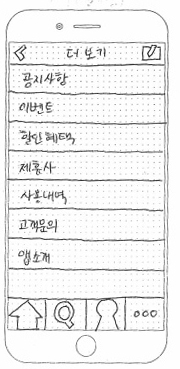 더보기
공지사항
이벤트
할인혜택
제휴사
사용내역
고객문의
앱소개